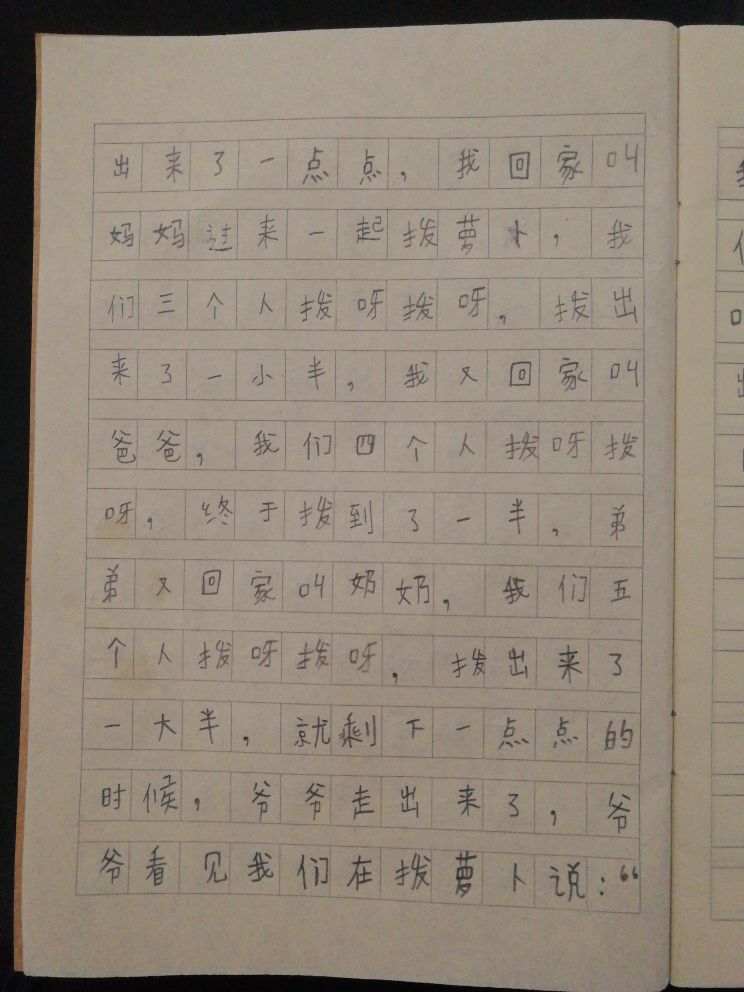 出来了一点点，我回家叫
妈妈过来一起拨萝卜，我
们三个人拨呀拨呀，拨出
来了一小半，我又回家叫
爸爸，我们四个人拨呀拨
呀，终于拨到了一半，弟
弟又回家叫奶奶，我们五
个人拨呀拨呀，拨出来了
一大半，就剩下一点点的
时候，爷爷走出来了，爷
爷看见我们在拨萝卜说：“